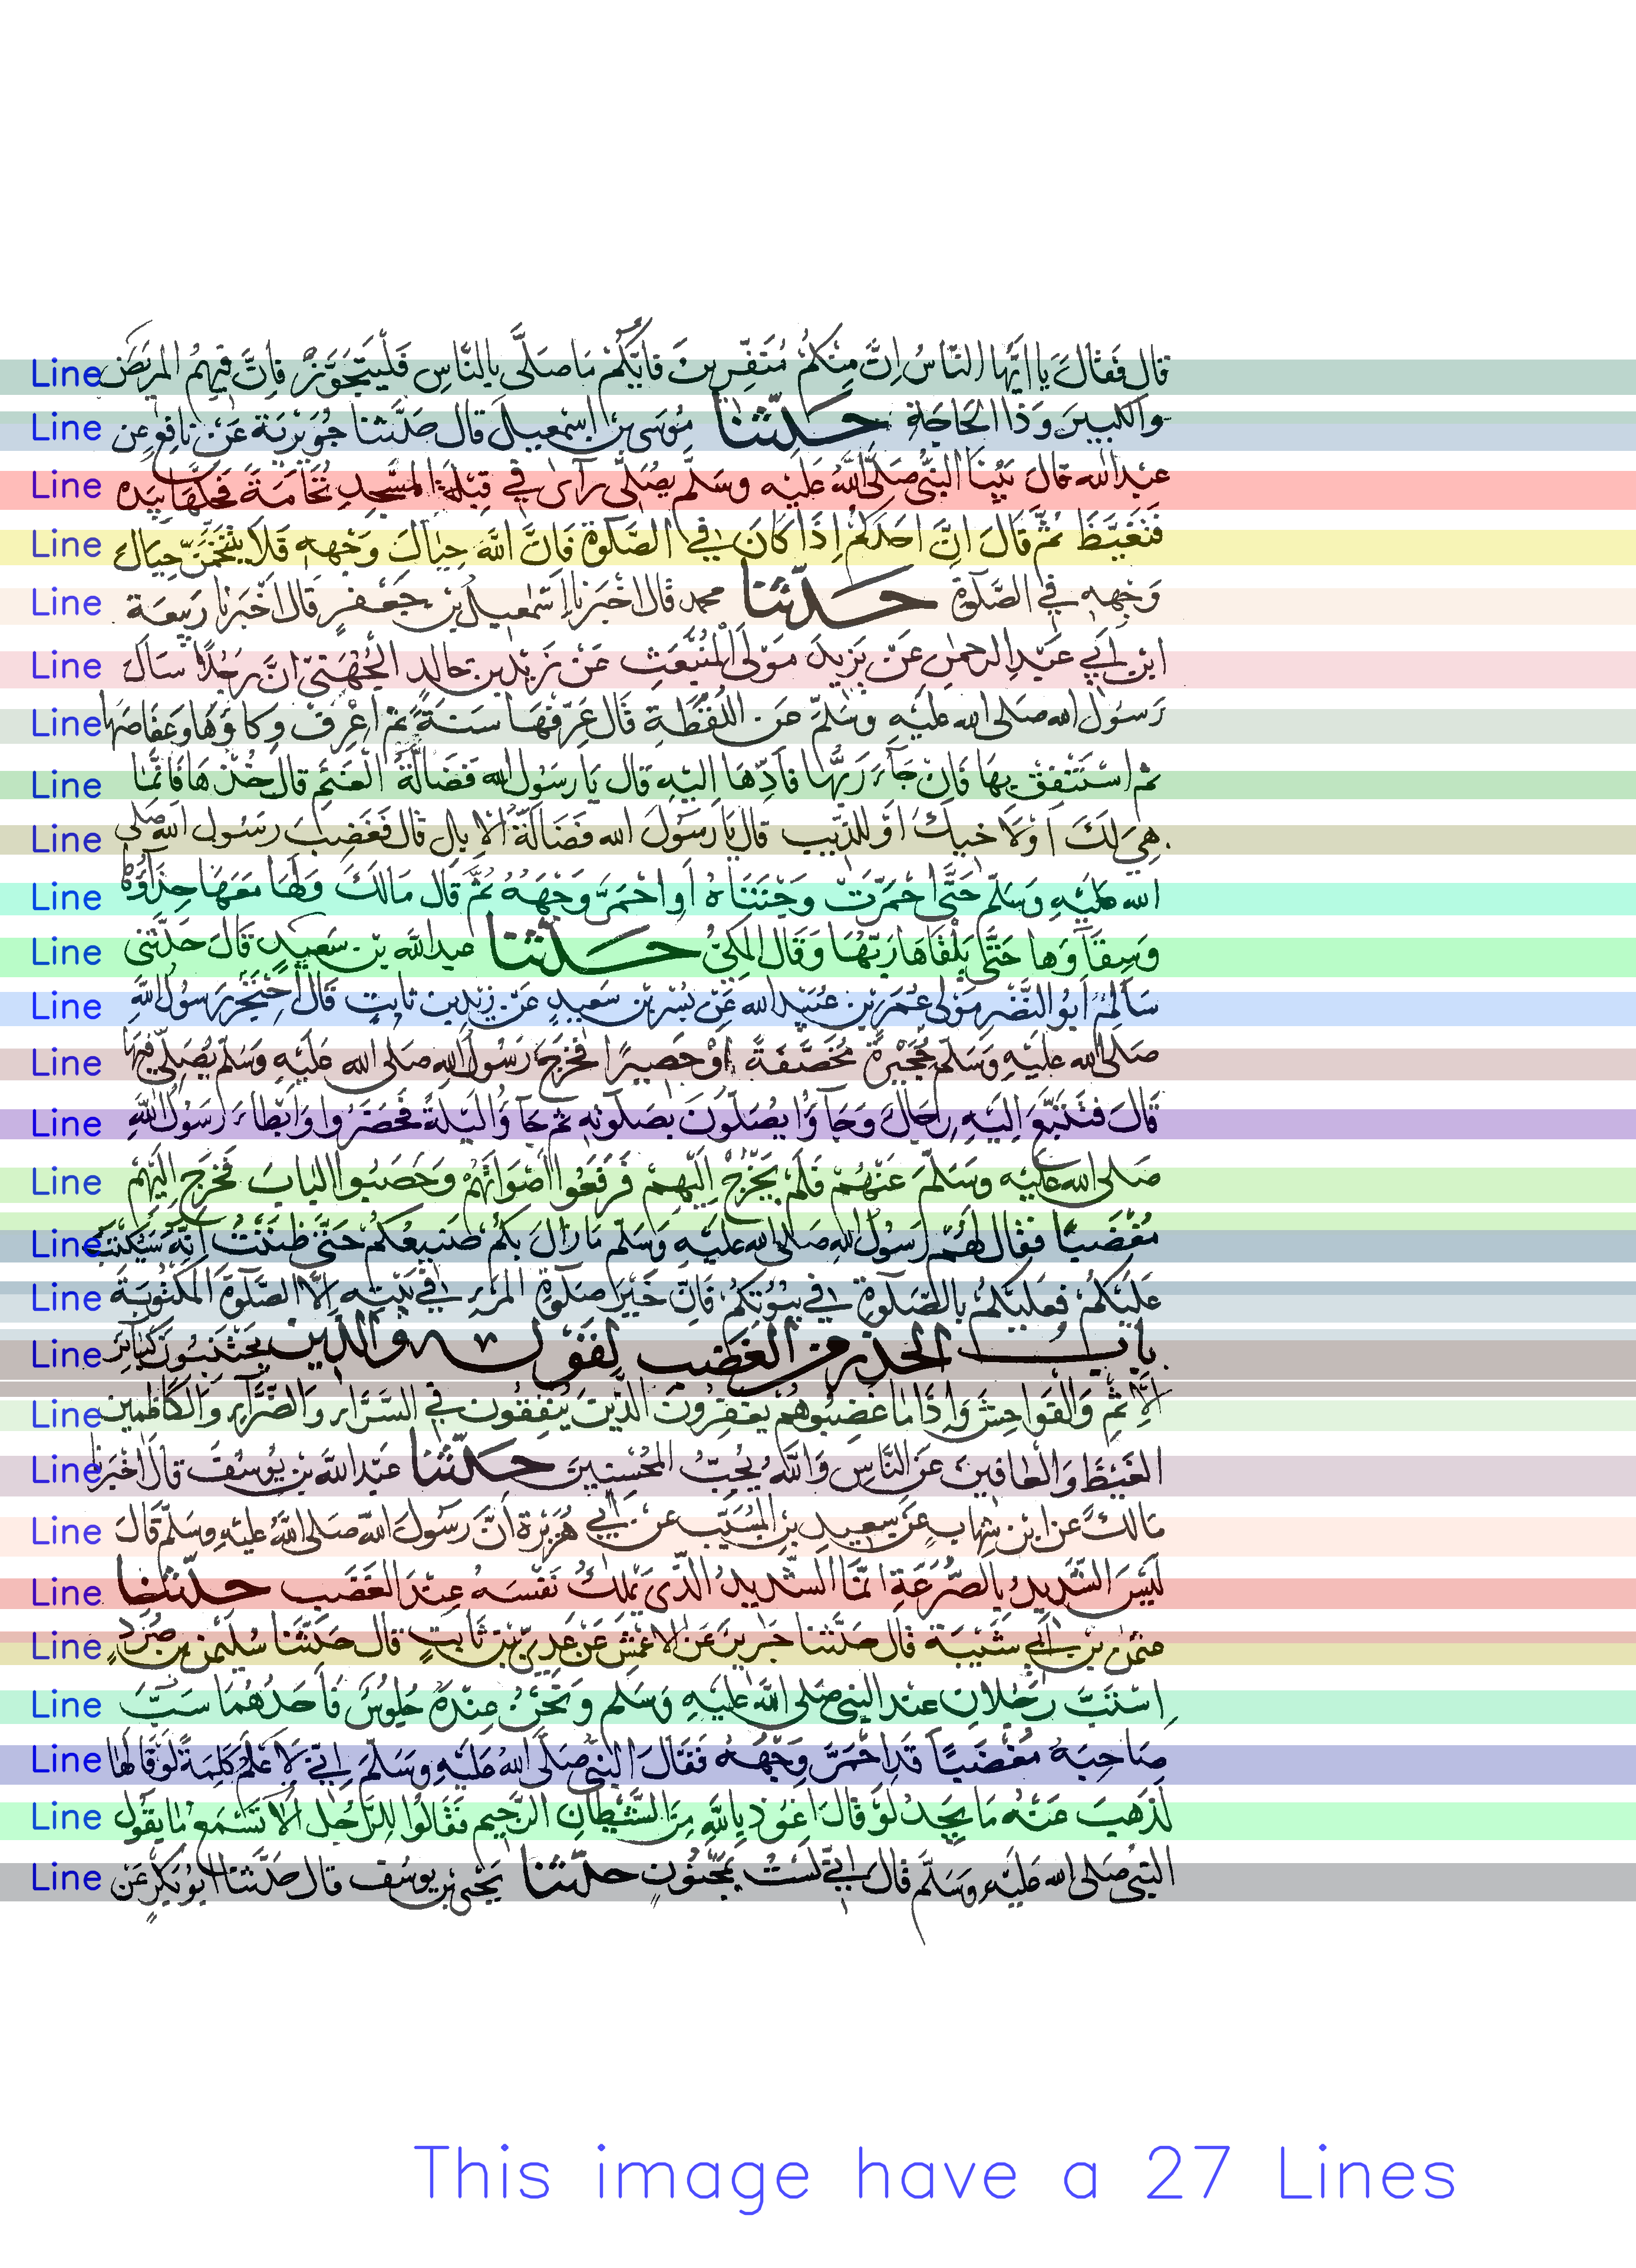 قال فَقَالَ يَا ايُّهَا النَّاسُ اِنَّ مِنكُمْ مُنَفِّرِينَ فايّكُمْ مَا صَلَّى بِالنَّاسِ فَلْيَتَجَوَّزْ فاِنَّ فِيهِمُ المَرِيضَ
Line
والكَبِيرَ وَذَا الحَاجَةِ حَدّثنا مُوسَى بن اسمعيل قال حَدَّثنا جُوَيْرِيَة عَنْ نافِعٍ عن
Line
عَبْدِ الله قال بَيْنَا النَّبِيُّ صَلَّى اللهُ عَلَيْهِ وسَلَّم يُصَلّى رَآى في قِبْلَةِ المَسْجِدِ نُخَامَةً فَحَكَّهَا بِيَدِه
Line
فَتَغَيَّظَ ثُمَّ قَالَ انَّ احَدَكُمْ اِذَا كَانَ في الصَّلَوةِ فَاِنَّ اللهَ حِيَالَ وَجْهِهِ فَلَا يَتَنَخَّمَنَّ حِيَالَ
Line
وَجْهِهِ فِي الصَّلَوةِ حَدّثنا محمد قال اخبَرَنا اسْمعيل بن جَعْفَرٍ قَالَ اخْبَرَنا رَبِيعَة
Line
ابن اَبِي عَبْدِ الرحمن عَنْ يَزِيدَ مَوْلَى المُنْبَعِثِ عَنْ زَيْدِ بن خالدٍ الجُهَنِيّ انَّ رَجُلًا سَأَلَ
Line
رَسُولَ الله صَلى الله عليْهِ وسَلَّم عَن اللُّقَطَةِ قَال عَرِّفْهَا سَنَةً ثُمَّ اعْرِفْ وِكَاءَهَا وَعِفَاصَهَا
Line
ثم اسْتَنْفِقْ بِهَا فَاِنْ جَاءَ رَبُّهَا فَأَدِّهَا اليْهِ قَالَ يَا رسُولَ الله فَضَالَّةُ الغَنَمِ قالَ خُذْهَا فَانَّمَا
Line
هِيَ لَكَ اَوْ لِاَخِيكَ اَوْ لِلذِّيبِ قال يَا رَسُولَ الله فَضَالَّةُ الْاِبِلِ قَالَ فَغَضِبَ رَسُولُ الله صَلَّى
Line
الله عَلَيْهِ وَسَلَّم حَتَّى احْمَرَّتْ وَجْنَتَاهُ اَوِ احْمَرَّ وَجْهُهُ ثُمَّ قَال مَالَكَ وَلَهَا مَعَهَا حِذَاؤُهَا
Line
وَسِقَاؤُهَا حَتَّى يَلْقَاهَا رَبُّهَا وَقَالَ المَكِّيُّ حَدّثنا عبدالله بن سَعِيدٍ قَالَ حَدَّثَنِي
Line
سَالِمٌ اَبُو النَّضْرِ مَوْلَى عُمَرَ بن عُبَيْدِ الله عَنْ بُسْرِ بن سَعِيدٍ عَنْ زَيْدِ بن ثَابِتٍ قَالَ احْتَجَرَ رَسُولُ اللهِ
Line
صَلى الله عليْهِ وَسَلّم حُجَيْرَةً مُخَصَّفَةً اوْ حَصِيرًا فَخَرَجَ رَسُولُ الله صَلى الله عَلَيْهِ وَسَلّم يُصَلِّي فِيهَا
Line
قَالَ فَتَتَبَّعَ اِلَيْهِ رِجَالٌ وَجَاؤُا يُصَلُّونَ بِصَلَوتِهِ ثم جَاؤُا لَيْلَةً فَحَضَرُوا وَابْطَاءَ رَسُولُ اللهِ
Line
صَلى الله عليْه وَسَلَّم عَنْهُمْ فَلَمْ يَخْرُجْ اِلَيْهِمْ فَرَفَعُوا اَصْوَاتَهُمْ وَحَصَبُوا البَابَ فَخَرَجَ اِلَيْهِمْ
Line
مُغْضَبًا فقَالَ لَهُمْ رَسُولُ اللهِ صَلى الله عليْهِ وَسَلم مَا زَالَ بِكُمْ صَنِيعُكُمْ حَتَّى ظَنَنْتُ اَنَّهُ سَيُكْتَبُ
Line
عَلَيْكُمْ فَعَلَيْكُمْ بِالصَّلَوةِ فِي بُيُوتِكُمْ فَاِنَّ خَيْرَ صَلَوةِ المَرْءِ فِي بَيْتِهِ اِلَّا الصَّلَوةَ المَكْتُوبَةَ
Line
بَاب الحَذَرِ مِنَ الغَضَبِ لِقَوْلِه والَّذِين يَجْتَنِبُونَ كَبَائِرَ
Line
الْاِثْمِ وَالفَوَاحِشَ وَاِذَا مَا غَضِبُوا هُمْ يَغْفِرُونَ الَّذِينَ يُنْفِقُونَ فِي السَّرَّاءِ وَالضَّرَّاءِ وَالكَاظِمِينَ
Line
الغَيْظَ وَالْعَافِينَ عَنِ النَّاسِ وَاللهُ يُحِبُّ المُحْسِنِينَ حَدّثنا عَبْدُ اللهِ بن يُوسُفَ قَالَ اخْبَرَنا
Line
مَالِكٌ عَنِ ابْنِ شِهَابٍ عَنْ سَعِيدِ بنِ المُسَيَّبِ عن اَبِي هُرَيْرَةَ اَنَّ رَسُولَ اللهِ صَلى اللهُ عليْهِ وسَلَّم قَالَ
Line
لَيْسَ الشَّدِيدُ بِالصُّرَعَةِ اِنَّمَا الشَّدِيدُ الَّذِي يَمْلِكُ نَفْسَهُ عِنْدَ الغَضَبِ حَدّثنا
Line
عثمن بن اَبِي شَيْبَةَ قَالَ حَدَّثنا جَرِيرٌ عَنِ الاعْمَشِ عَنْ عَدِيّ بن ثَابِتٍ قَالَ حَدَّثَنَا سُلَيْمن بن صُرَدٍ
Line
اِسْتَبَّ رَجُلانِ عند النبي صَلى اللهُ عَلَيْهِ وَسَلم وَنَحْنُ عِنْدَهُ جُلُوسٌ فَاَحَدُهُمَا سَبَّ
Line
صَاحِبَهُ مُغْضَبًا قَدِ احْمَرَّ وَجْهُهُ فَقَالَ النبيُّ صَلَّى اللهُ عَلَيْهِ وَسَلَّم اِنِّي لَاعْلَمُ كَلِمَةً لَوْ قَالَهَا
Line
لَذَهَبَ عَنْهُ مَا يَجِدُ لَوْ قَالَ اَعُوذُ بِاللهِ مِنَ الشَّيْطَانِ الرَّجِيمِ فَقَالُوا لِلرَّجُلِ اَلَا تَسْمَعُ مَا يَقُولُ
Line
النبي صَلى الله عَلَيْهِ وَسَلَّم قَالَ اِنِّي لَسْتُ بِمَجْنُونٍ حَدّثنا يَحْيَى بن يوسُف قال حَدَّثنا ابُو بَكْرٍ عَنْ
Line
This image have a 27 Lines